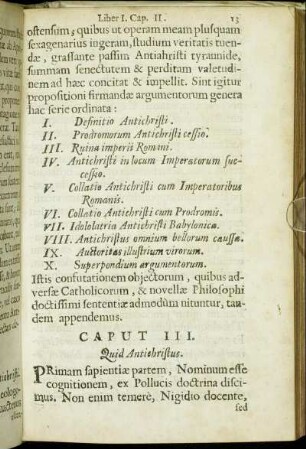 Liber I. Cap. II. 13
ostensim; quibus ut operam meam plusquam
sexagenarius ingeram, studium veritatis tuen-
dæ, grassante passim Antiahristi tyrannide,
summam senectutem & perditam valetudi-
nem ad hæc concitat & impellit. Sint igitur
propositioni firmandæ argumentorum genera
hac serie ordinata:
I. Definitio Antichristi.
II. Prodromorum Antichristi cessio.
III. Ruina imperii Romani.
IV. Antichristi in locum Imperatorum suc-
cessio.
V. Collatio Antichristi cum Imperatoribus
Romanis.
VI. Collatio Antichristi cum Prodromis.
VII. Idololatria Antichristi Babylonica.
VIII. Antichristus omnium bellorum caussa.
IX. Auctoritas illustrium virorum.
X. Superpondium argumentorum.
Istis confutationem objectorum, quibus ad-
versæ Catholicorum, & novellæ Philosophi
doctissimi sententiæ admodùm nituntur, tan-
dem appendemus.
CAPUT III.
Quid Antichristus.
PRimam sapientiæ partem, Nominum esse
cognitionem, ex Pollucis doctrina disci-
mus. Non enim temerè, Nigidio docente,
sed